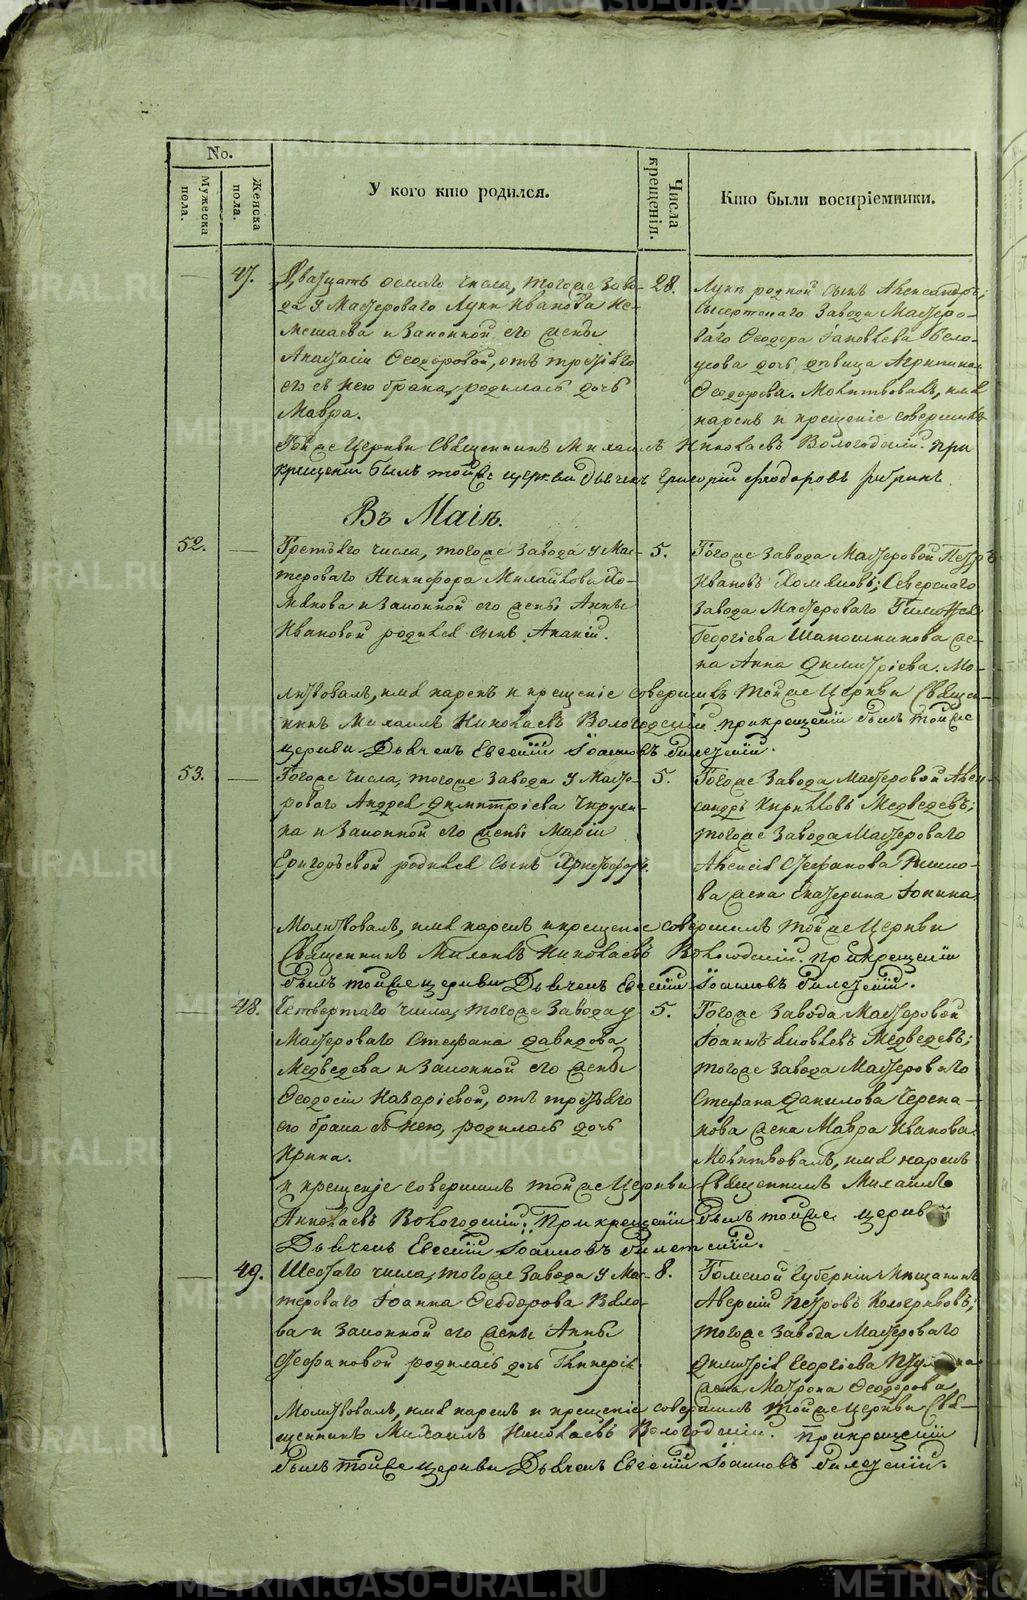 No.
Мужеска пола.
Женска пола.
У кого кто родился.
Числа крещенія.
Кто были воспріемники.
47.
Двадцать осмаго числа, тогоже заво-
да у Мастероваго Луки Иванова Не-
мешаева и законной его жены
Анастасіи Ѳеодоровой, отъ третьяго
его съ нею брака, родилась дочь
Мавра.
28.
Луки родной сынъ Александръ;
Сысертскаго завода Мастеро-
ваго Ѳеодора Бело-
усова дочь девица Агрипина
Ѳеодорова. Молитвовалъ, имя
нарекъ и крещеніе совершилъ
Тойже Церкви Священникъ Михаилъ Николаевъ Вологодскій. при
крещеніи былъ тойже церкви Дьячекъ Григорій Ѳеодоровъ
Въ Маіѣ.
52.
Третьяго числа, тогоже завода у Мас-
тероваго Никифора Михайлова Хо-
мякова и законной его жены Анны
Ивановой родился сынъ Ананій.
5.
Тогоже завода Мастеровой Петръ
Ивановъ Хомяковъ; Северскаго
завода Мастероваго Тимоѳея
Георгіева Шапошникова же-
на Анна Димитріева. Мо-
литвовалъ, имя нарекъ и крещеніе совершилъ тойже Церкви Свяще-
никъ Михаилъ Николаевъ Вологодскій. при крещеніи былъ тойже
церкви Дьячекъ Евгеній Іоанновъ
53.
Тогоже числа, тогоже завода у Масте-
роваго Андрея Димитріева
и законной его жены Маріи
Григорьевой родился сынъ Христофоръ.
5.
Тогоже завода Мастеровой Алек-
сандръ Кириловъ Медведевъ;
тогоже завода Мастероваго
Алексея Стефанова
ва жена Екатерина Іонина
Молитвовалъ, имя нарекъ и крещеніе совершилъ тойже Церкви
Священникъ Михаилъ Николаевъ Вологодскій. при крещеніи
былъ тойже церкви Дьячекъ Евгеній Іоанновъ
48.
Четвертаго числа, тогоже завода у
Мастероваго Стефана Давидова
Медведева и законной его жены
Ѳеодосіи Назаріевой, отъ третьяго
его брака съ нею, родилась дочь
Ирина.
5.
Тогоже завода Мастеровой
Іоаннъ Яковлевъ Медведевъ;
тогоже завода Мастероваго
Стефана Данилова Черепа-
нова жена Мавра Иванова.
Молитвовалъ, имя нарекъ
и крещеніе совершилъ тойже Церкви Священникъ Михаилъ
Николаевъ Вологодскій. При крещеніи былъ тойже церкви
Дьячекъ Евгеній Іоанновъ
49.
Шестаго числа, тогоже завода у Мас-
тероваго Іоанна Ѳеодорова Бело-
ва и законной его жены Анны
Стефановой родилась дочь Гликерія.
8.
Томской Губерніи Мещанинъ
Аверкій Петровъ Кологривовъ;
тогоже завода Мастероваго
Димитрія Георгіева
жена Матрона Ѳеодорова
Молитвовалъ, имя нарекъ и крещеніе совершилъ тойже Церкви Свя-
щенникъ Михаилъ Николаевъ Вологодскій. при крещеніи
былъ тойже церкви Дьячекъ Евгеній Іоанновъ
METRIKI.GASO-URAL.RU